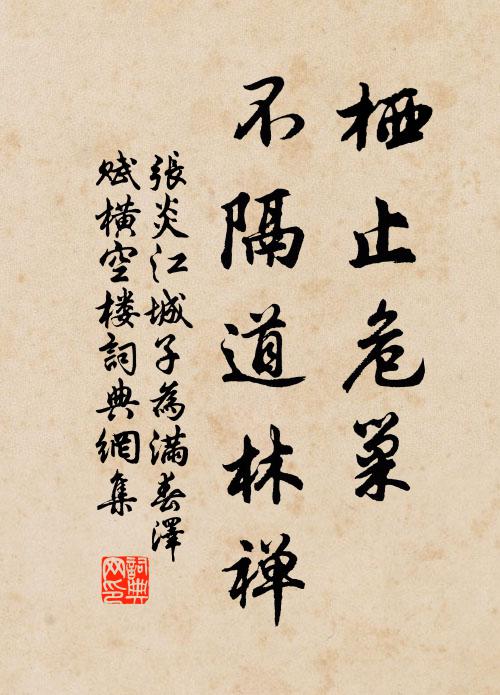 栖止危巢
不隔道林禅
張炎江城子為滿春澤
赋橫空楼詞典網集
詞典网印